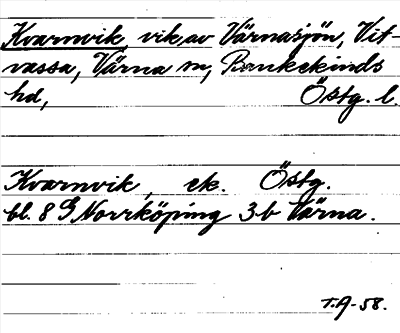 Kvarnvik, vik av Värnasjön, Vit-
vassa, Värna sn, Bankekinds
hd, Östg. l.
Kvarnvik, ek. Östg.
bl. 8 G Norrköping 3 b Värna.
T.A-58.